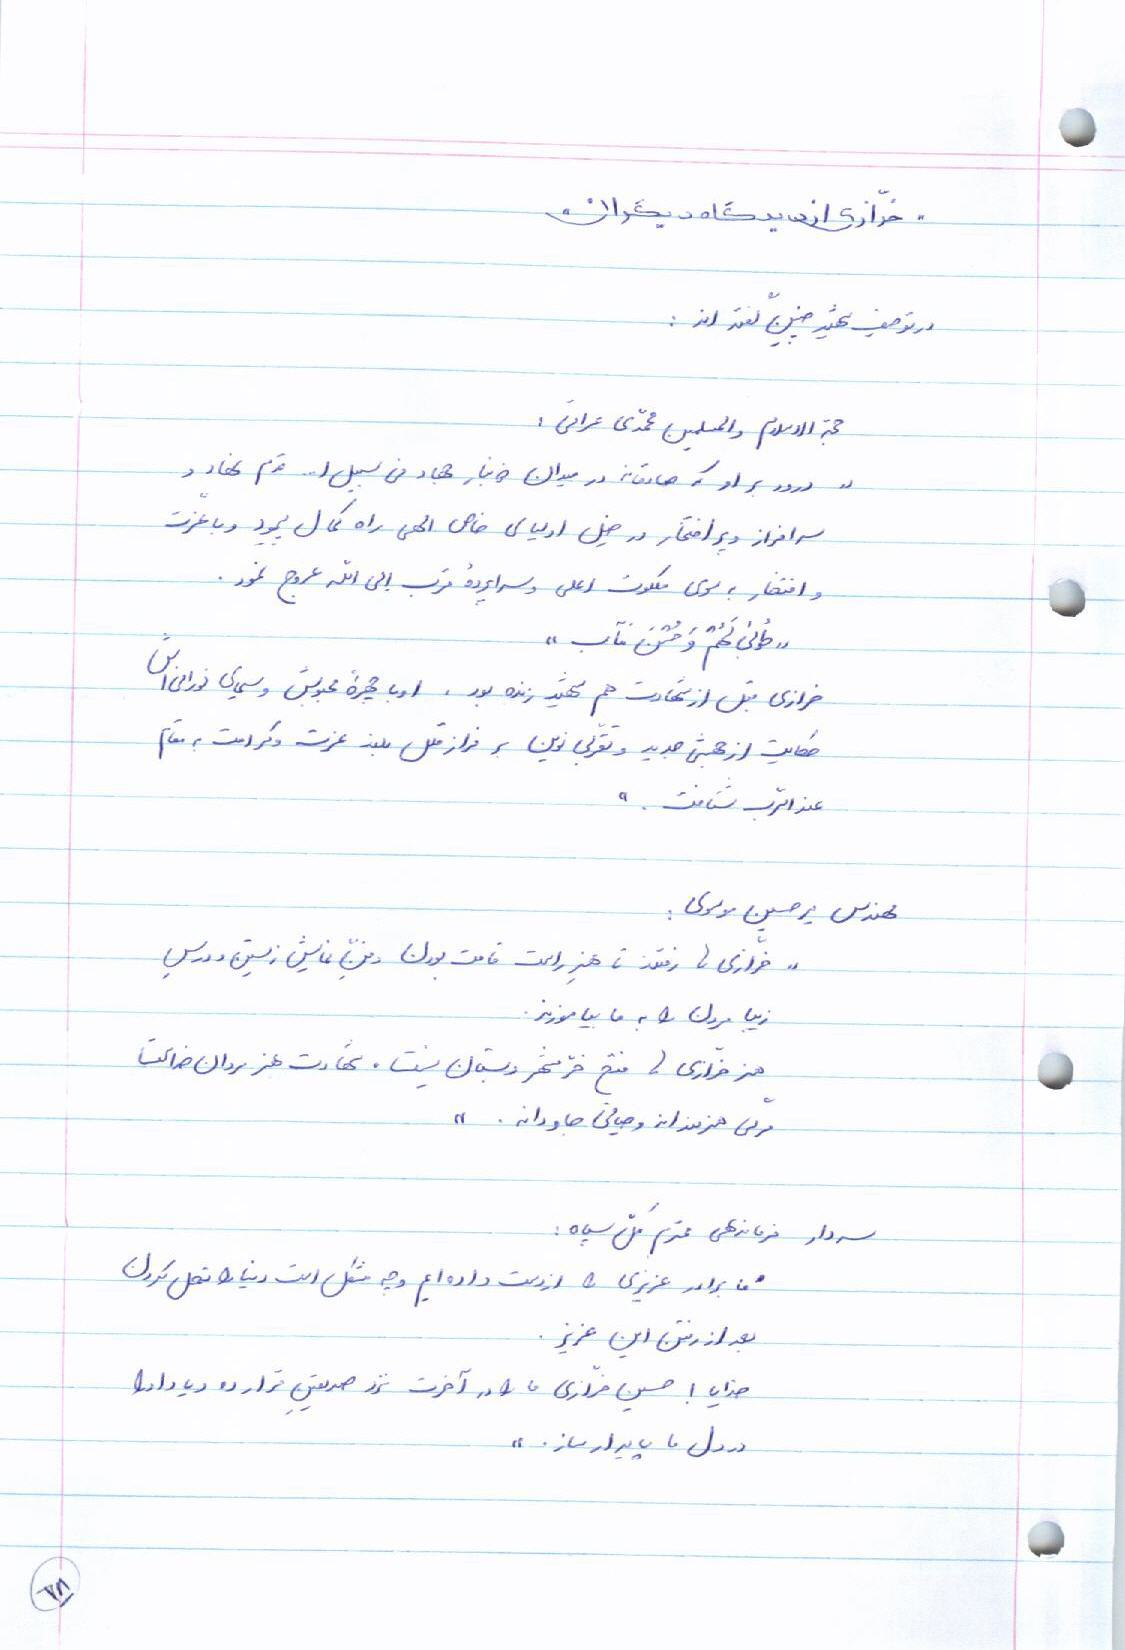 « خرّازی از دیدگاه دیگران »
در توصیف شهید چنین گفته اند :
حجة الاسلام والمسلمین محمّدی عراقی :
« درود بر او که صادقانه در میدان خونبار جهاد فی سبیل ا... قدم نهاد و
سرافراز و پر افتخار در خیل اولیای خاص الهی راه کمال پیمود و با عزّت
و افتخار به سوی ملکوت اعلی و سراپردهٔ قرب الی اللّه عروج نمود .
« طُوبیٰ لَهُمْ وَ حُسْنُ مَآب »
خرازی قبل از شهادت هم شهید زنده بود . او با چهرهٔ محبوبش و سیمای نورانی اش
حکایت از جهشی جدید و تقرّبی نوین بر فراز قلل بلند عزت و کرامت به مقام
عند الرّب شتافت . »
مهندس میرحسین موسوی :
« خرّازی ها رفتند تا هنرِ راست قامت بودن و فنّ زیستن و درسِ
زیبا مردن را به ما بیاموزند .
هنر خرّازی ها فتح خرّمشهر و بستان نیست . شهادت هنر مردان خداست
مرگی هنرمندانه و حیاتی جاودانه . »
سردار فرماندهی محترم کلّ سپاه :
« ما برادر عزیزی را از دست داده ایم و چه مشکل است دنیا را تحمل کردن
بعد از رفتن این عزیز .
خدایا ! حسین خرّازی ما را در آخرت نزد صدیقینِ قرار ده و یاد او را
در دل ما پایدار ساز . »